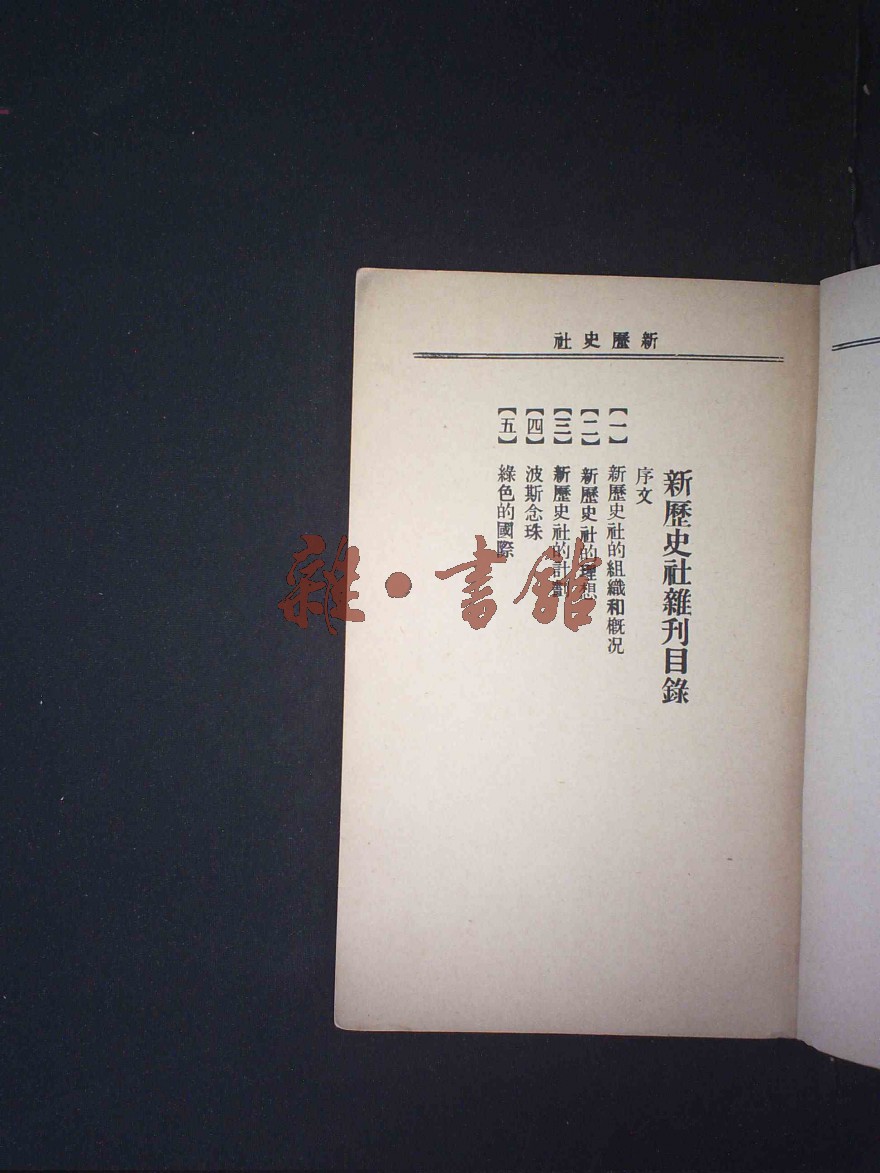 新歷史社
新歷史社雜刊目錄
序文
【一】 新歷史社的組織和概况
【二】 新歷史社的理想
【三】 新歷史社的計劃
【四】 波斯念珠
【五】 綠色的國際
雜·書館